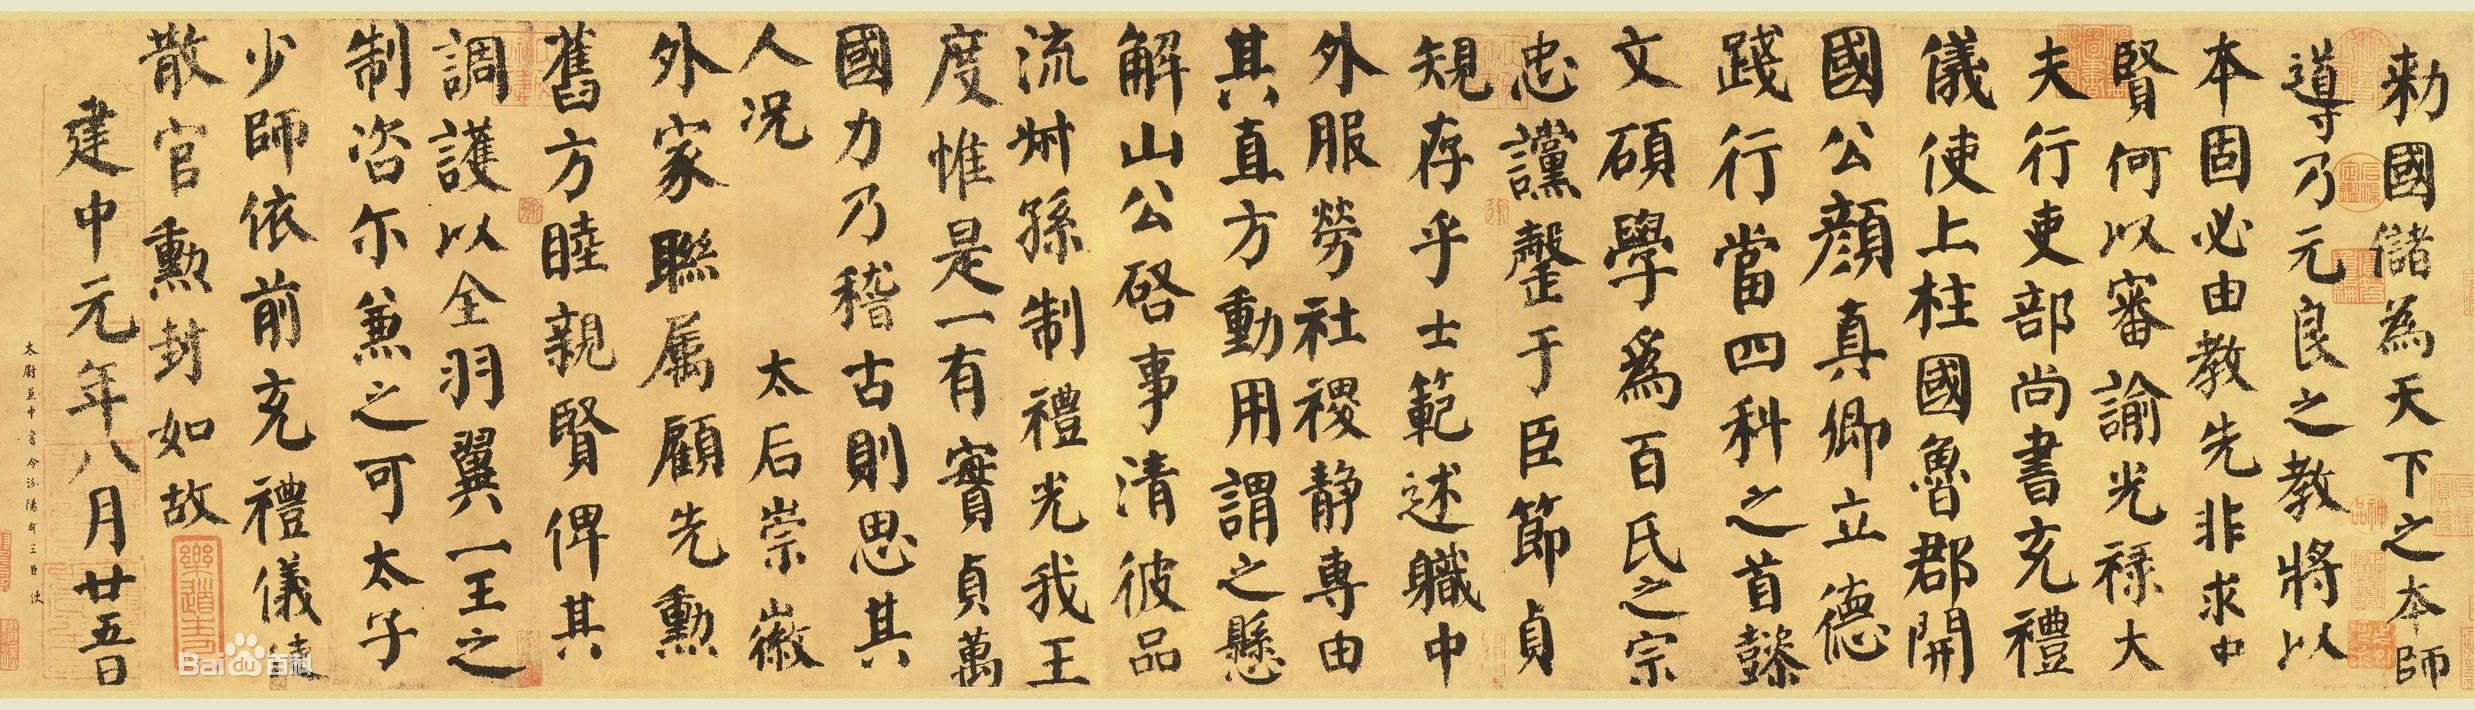 勑國儲為天下之本師
導乃元良之教將以
本固必由教先非求中
賢何以審諭光祿大
夫行吏部尚書充禮
儀使上柱國魯郡開
國公顏真卿立德
踐行當四科之首懿
文碩學為百氏之宗
忠讜罄于臣節貞
規存乎士範述職中
外服勞社稷靜專由
其直方動用謂之懸
解山公啓事清彼品
流叔孫制禮光我王
度惟是一有實貞萬
國力乃稽古則思其
人況 太后崇徽
外家聯屬顧先勳
舊方睦親賢俾其
調護以全羽翼一王之
制咨尔兼之可太子
少師依前充禮儀使
散官勳封如故
建中元年八月廿五日
太尉臣
樂道主人
Baidu百科